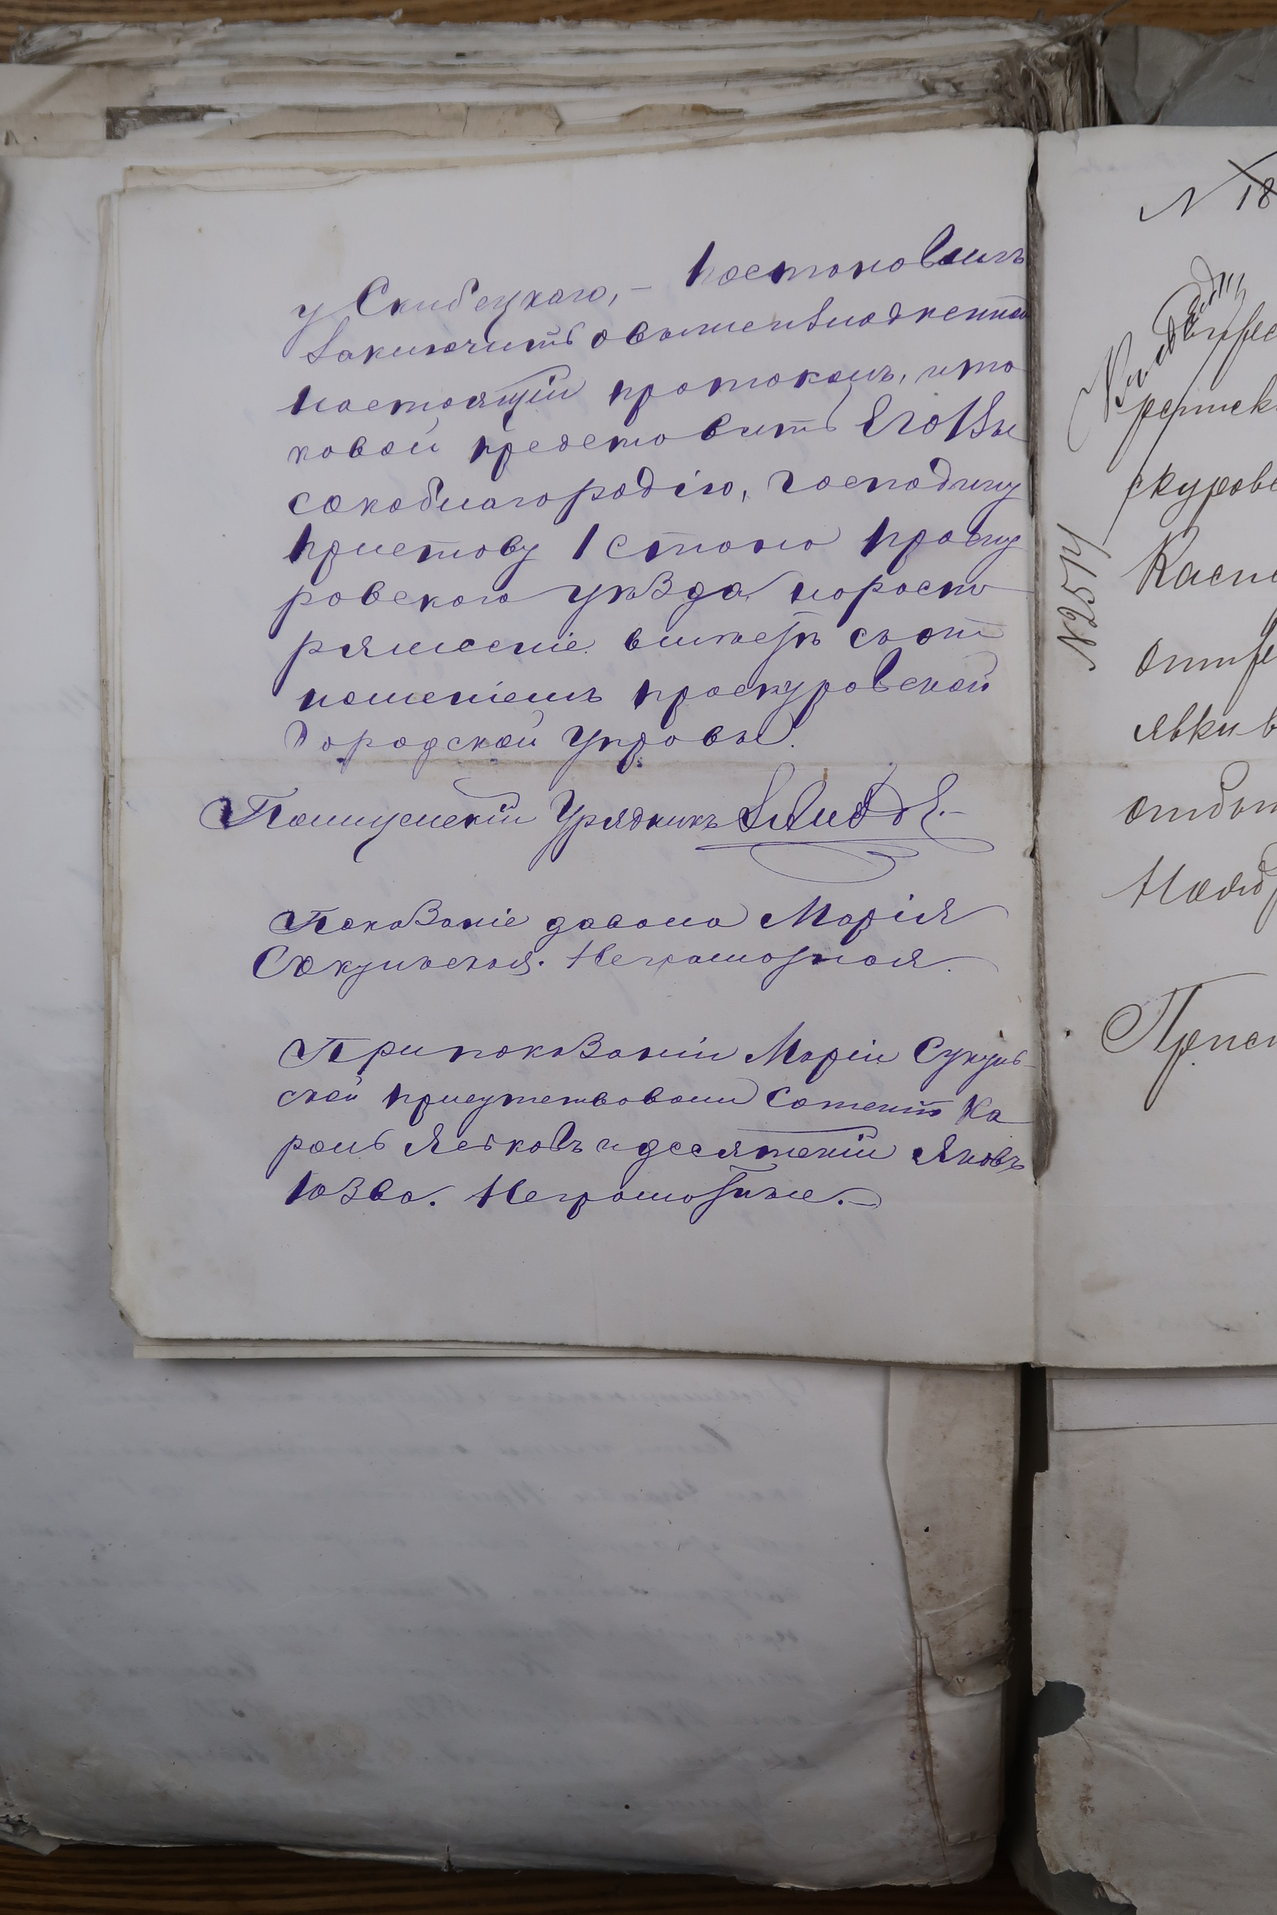 у Скибецкаго, – постановилъ
заключить о вышеизложенномъ
настоящій протоколъ, кото
ковой представить Его Вы
сокоблагородію, Господину
приставу 1 стана проску
ровского уезда нароспо
ряженіе вместе съ от
ношеніемъ проскуровской
Городской Управы.
Полицейскій Урядникъ
Показаніе давала Марія
Сокульская. Неграмотная.
При показаніи Маріи Сукуль
ской присутствовали Сотскій Ка
роль Ясковъ и десятскій Яковъ
Іозва. Неграмотные.
N 18
N 2514
скурове
Каспе
отпре
явки в
отбыт
Ноябр